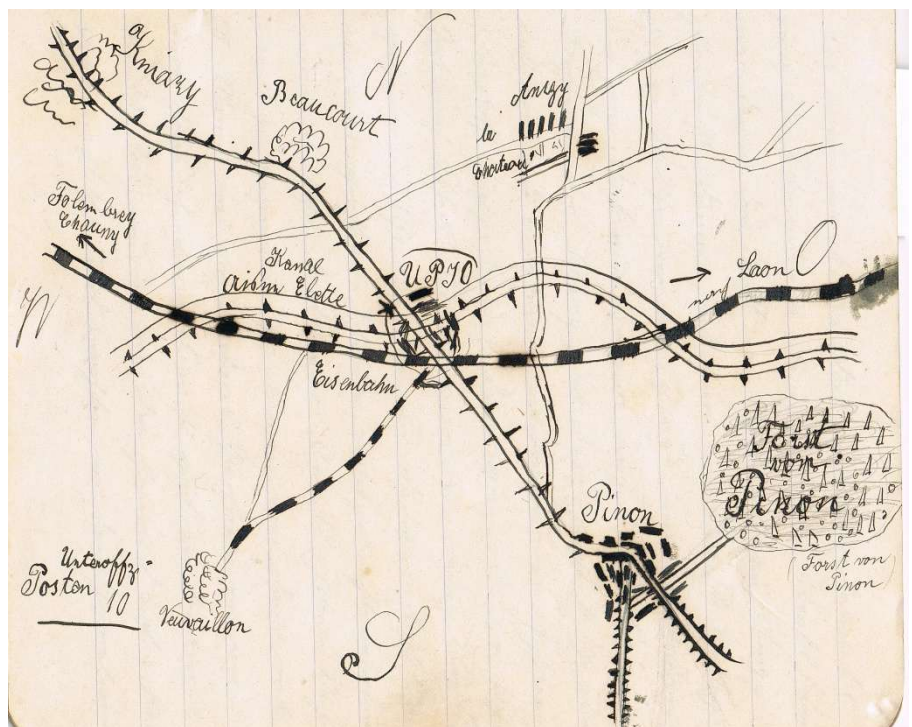 N
Beaucourt
Anizy
le
Chateau
Folembrey
Chauny
Kanal
Aisne Elette
UP10
nach
Laon
O
W
Eisenbahn
Forst
von
Pinon
Pinon
(Forst von
Pinon)
Unteroffz.-
Posten 10
Vauxaillon
S